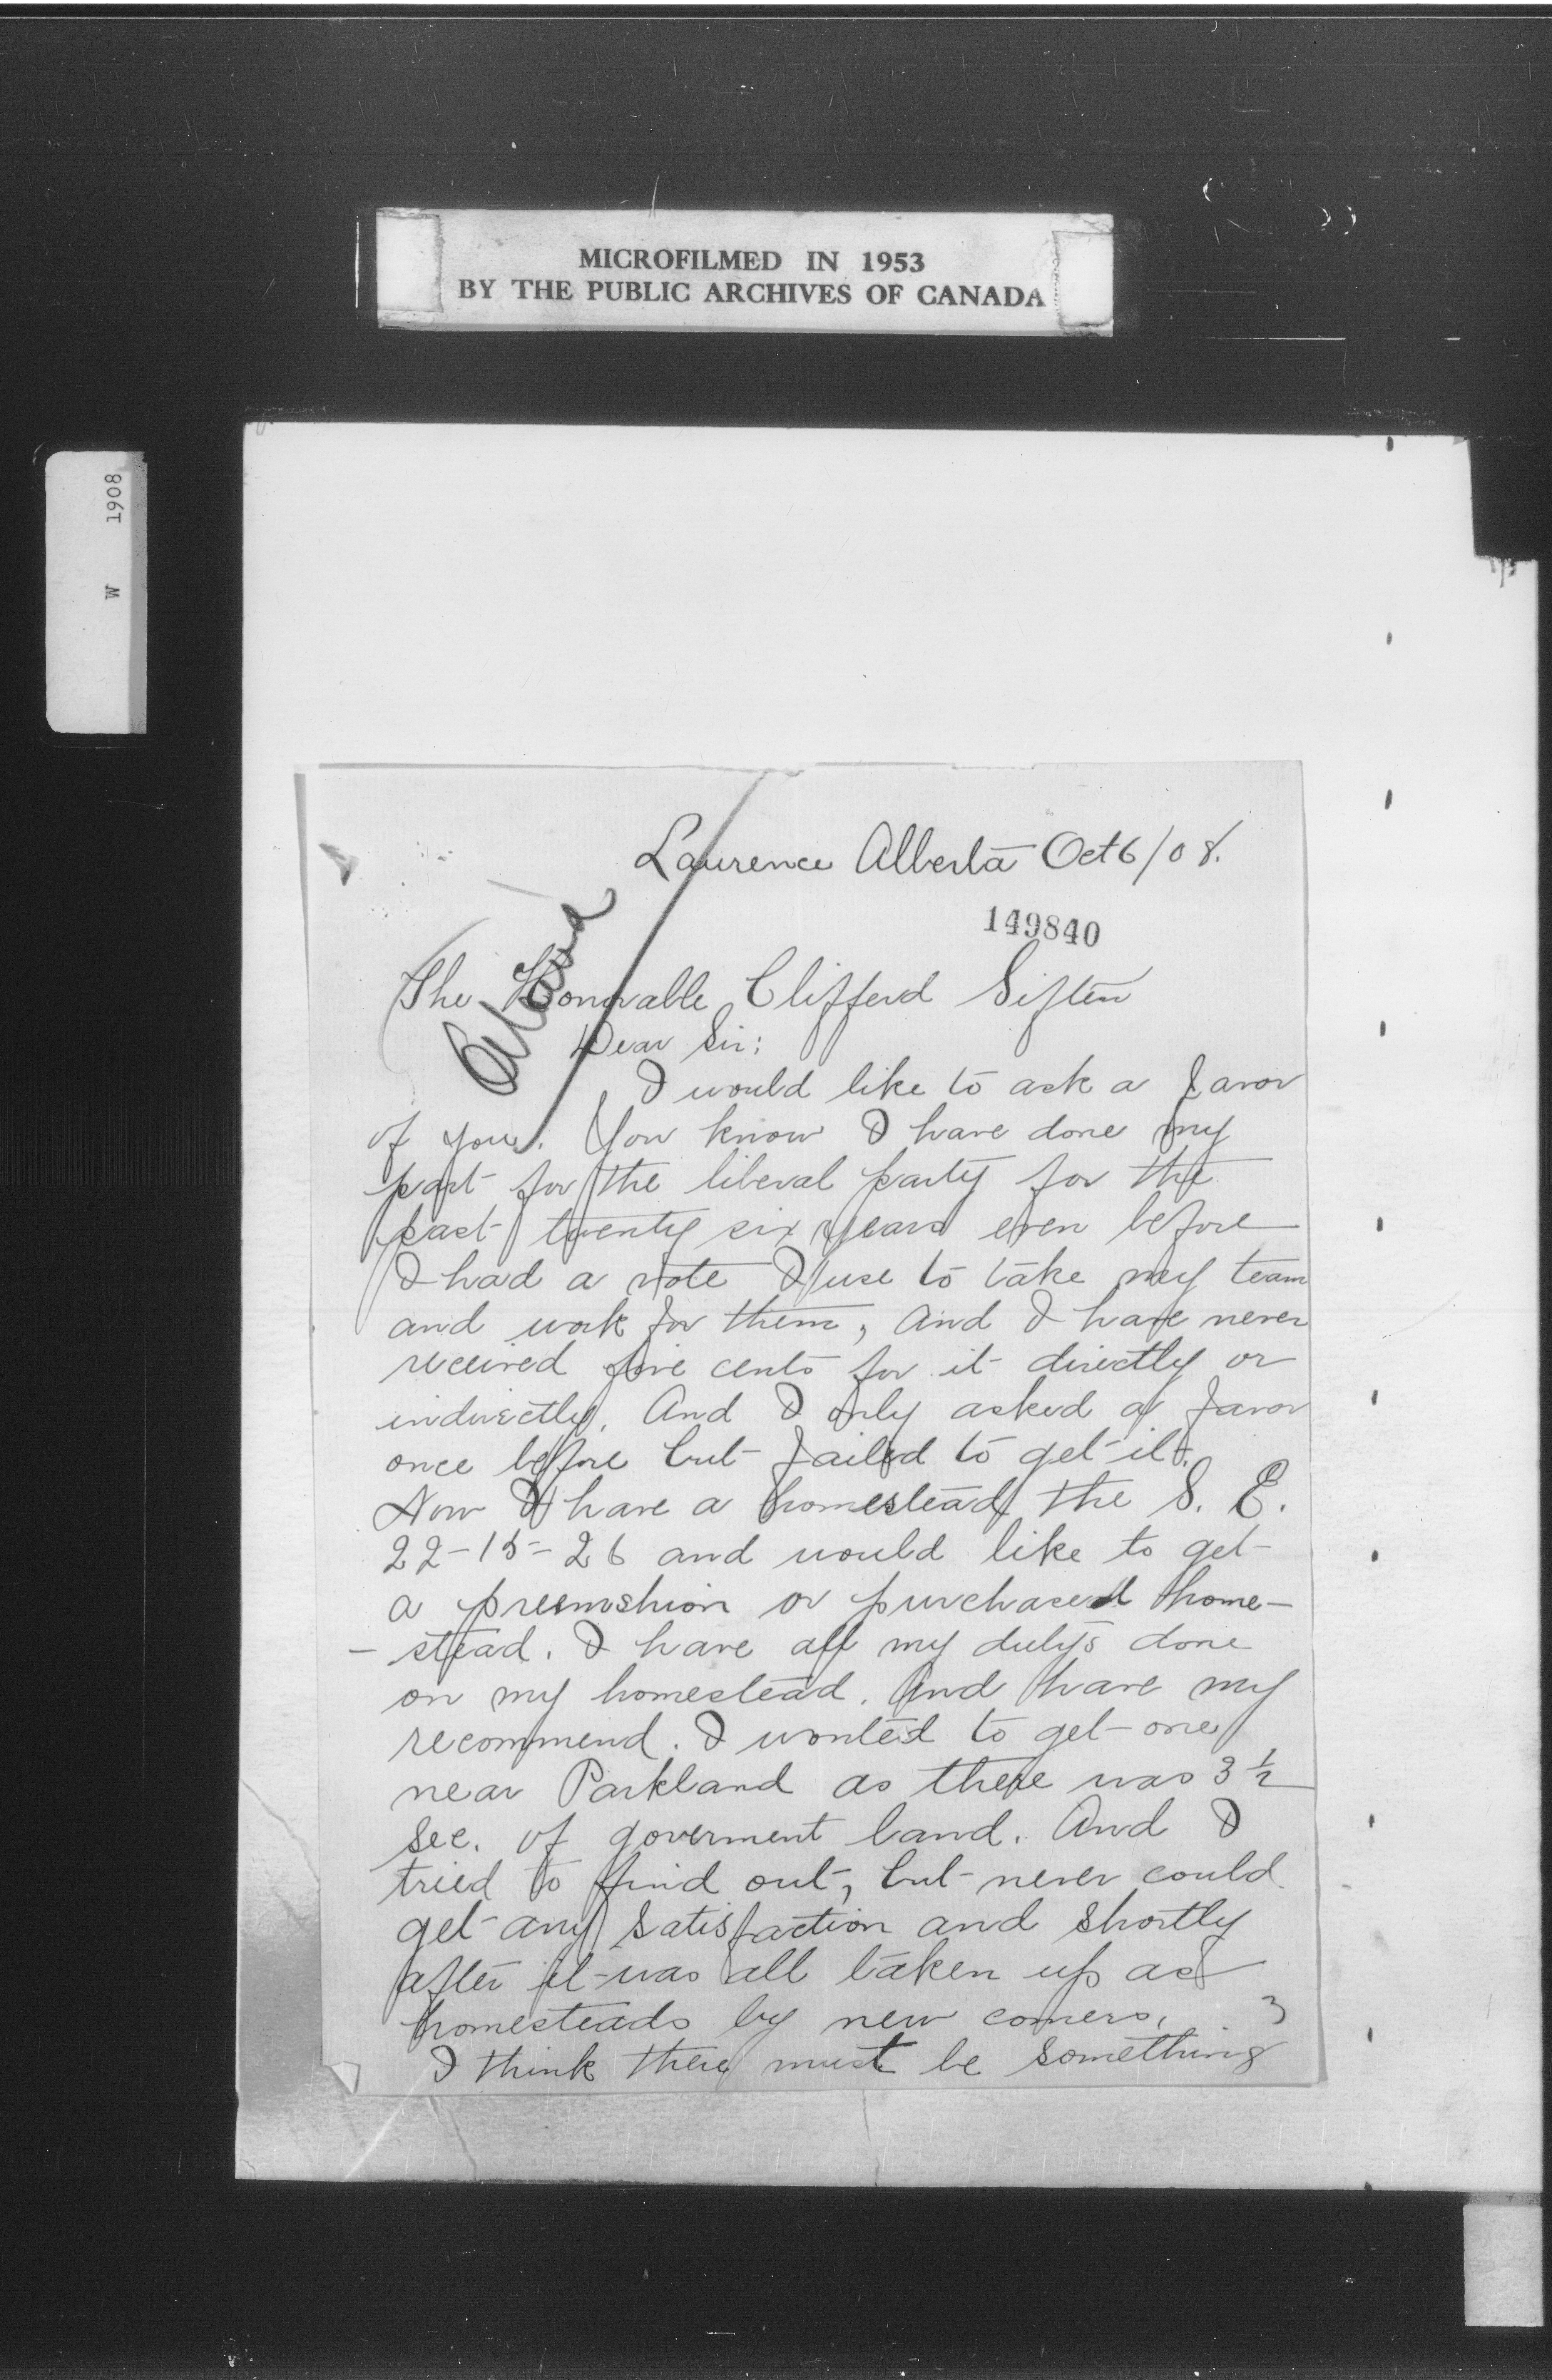 MICROFILMED IN 1953
BY THE PUBLIC ARCHIVES OF CANADA
W 1908
Laurence Alberta Oct 6/08.
149840
The Honorable Clifferd Siften
Dear Sir:
I would like to ask a favor
of you. You know I have done my
part for the liberal party for the
past twenty six years even before
I had a vote I use to take my team
and work for them, and I have never
received five cents for it directly or
indirectly. And I only asked a favor
once before but failed to get it.
Now I have a homestead the S. E.
22-15-26 and would like to get
a preemshion or purchased home-
- stead. I have all my dutys done
on my homestead. And have my
recommend. I wonted to get one
near Parkland as there was 3 ½
sec. of goverment land. And I
tried to find out, but never could
get any satisfaction and shortly
after it was all taken up as
homesteads by new comers.
3
I think there must be something